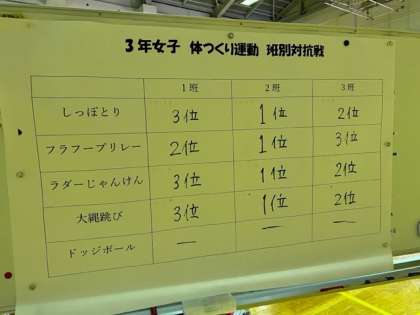 3年女子 体つくり運動 班別対抗戦
1班 2班 3班
しっぽとり 3位 1位 2位
フラフープリレー 2位 1位 3位
ラダーじゃんけん 3位 1位 2位
大縄跳び 3位 1位 2位
ドッジボール — — —